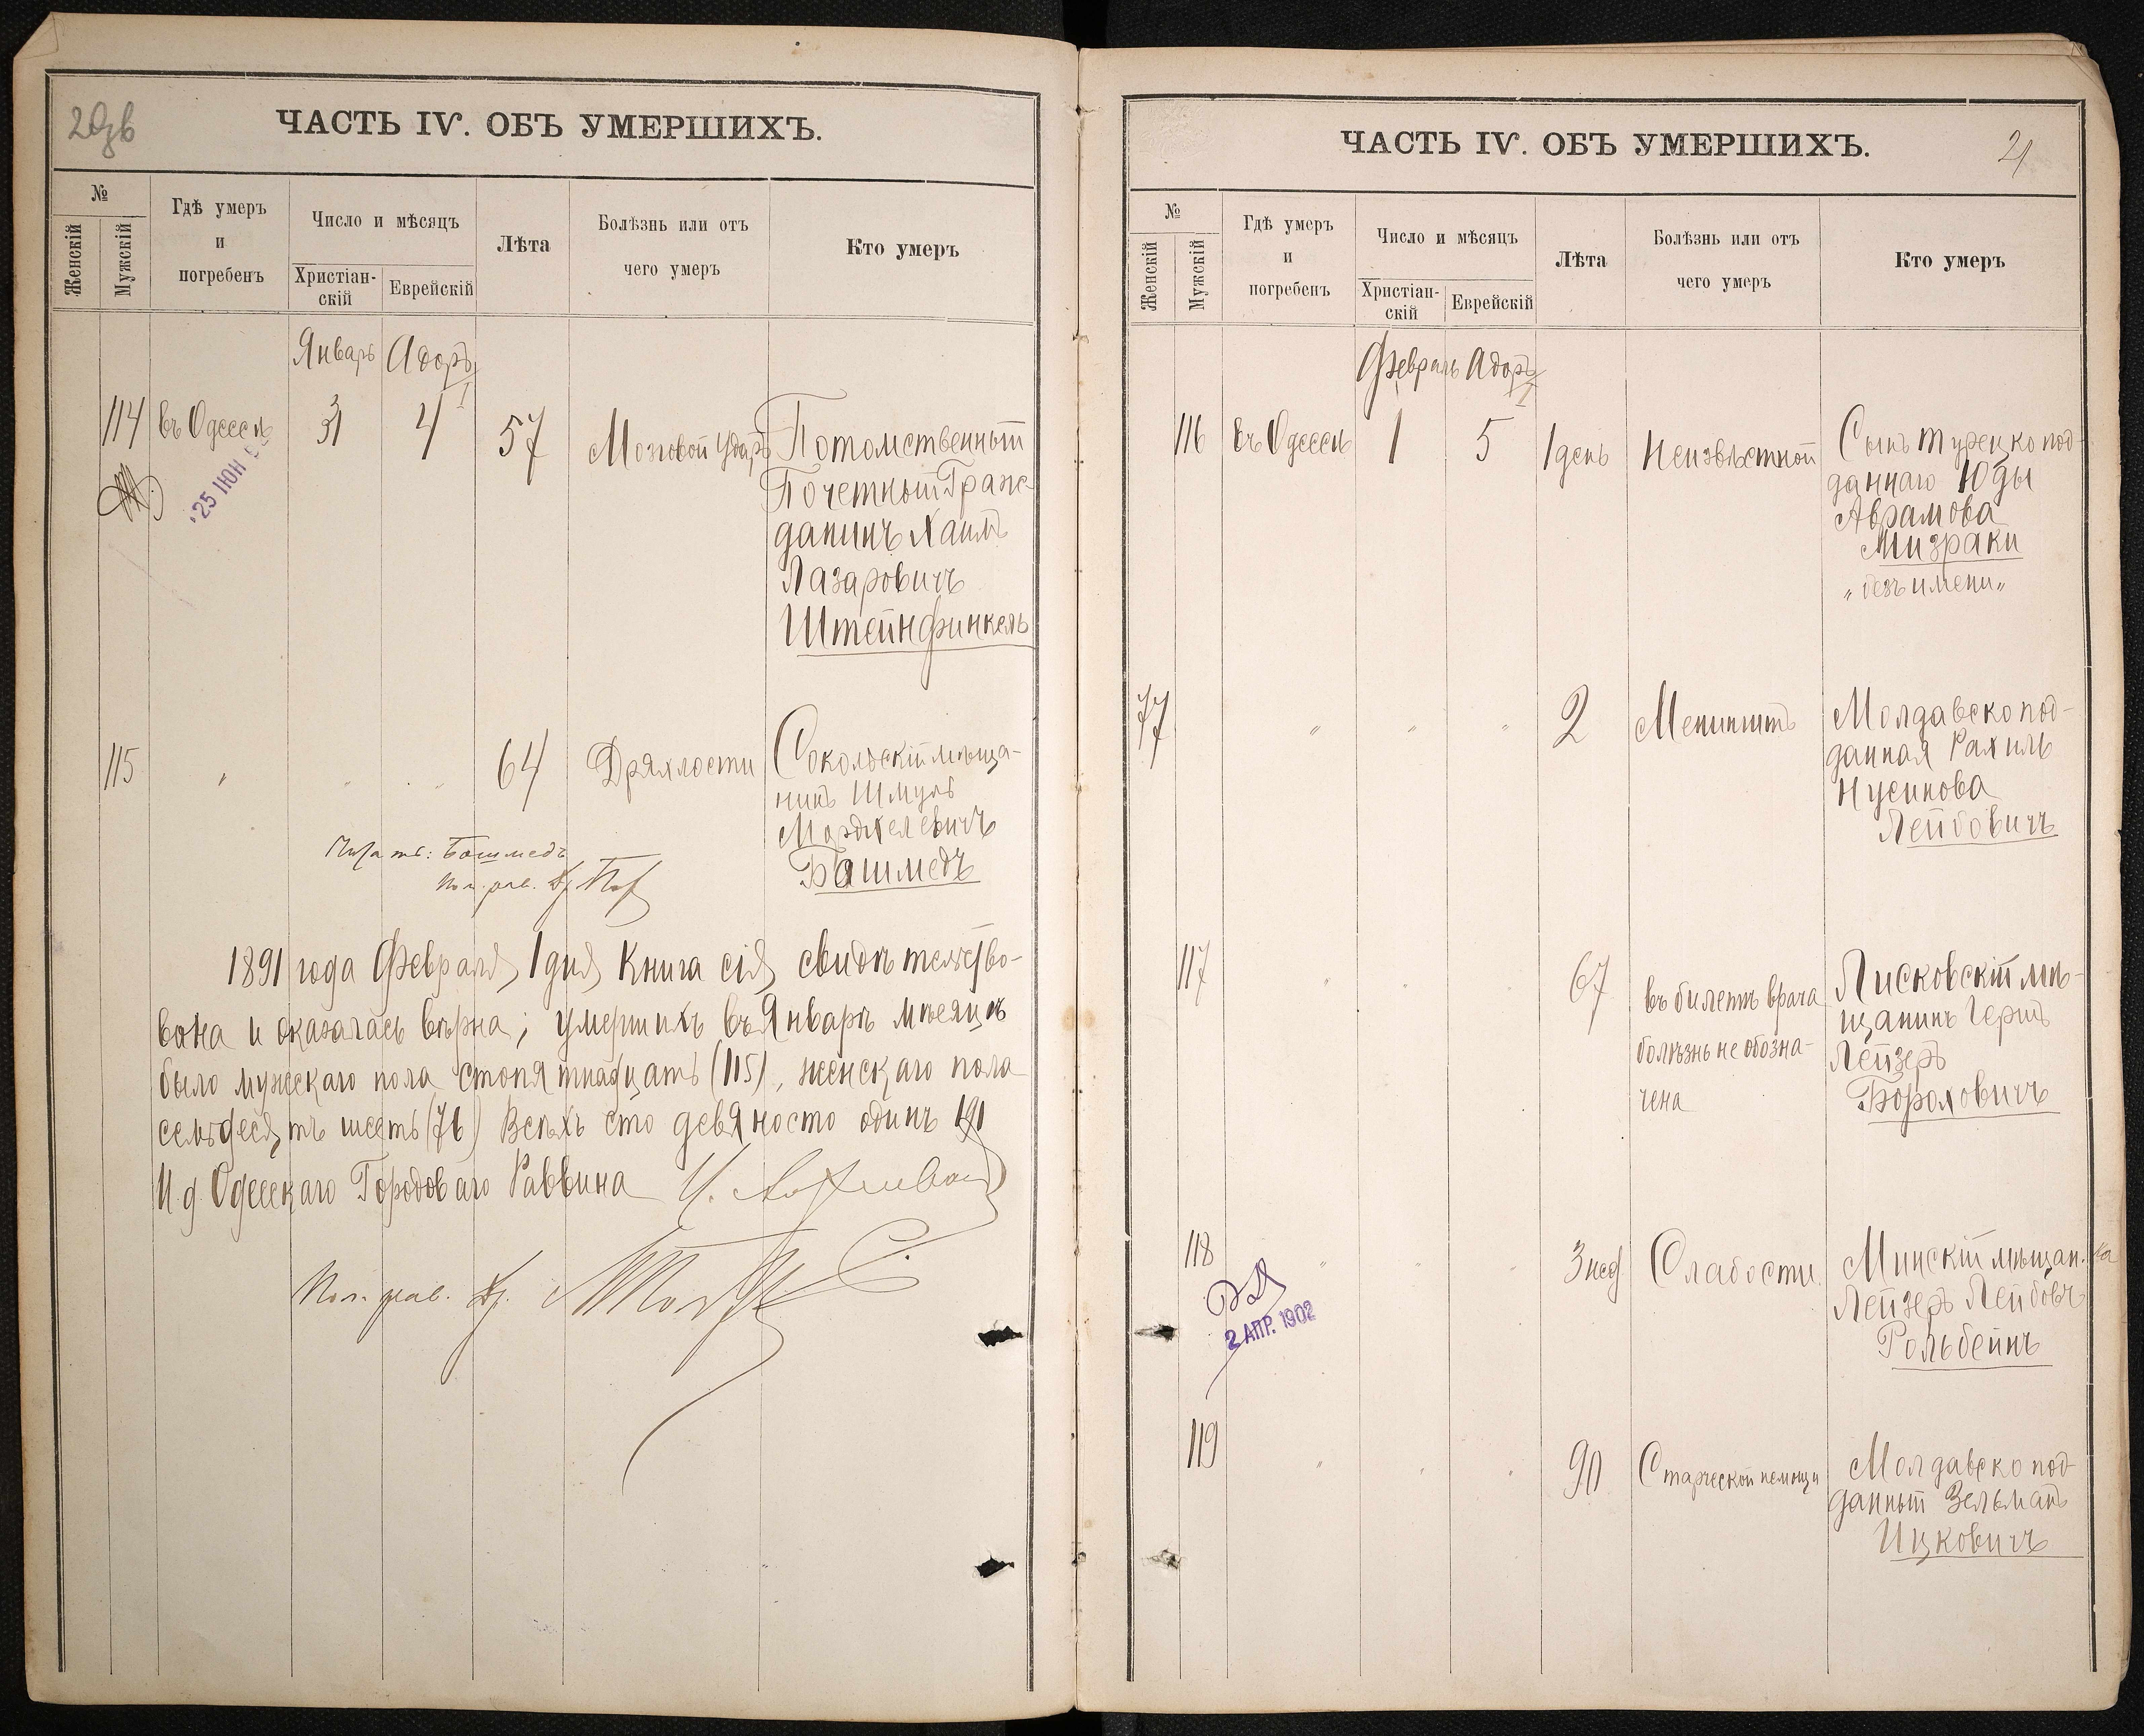 ЧАСТЬ IV. ОБЪ УМЕРШИХЪ.
№
Женскій
Мужскій
Гдѣ умеръ
и
погребенъ
Число и мѣсяцъ
Христіан-
скій
Еврейскій
Лѣта
Болѣзнь или отъ
чего умеръ
Кто умеръ
Январь Адоръ
I
114 въ Одессѣ 31 4 57 Мозговой ударъ Потомственный
Почетный Граж-
данинъ Хаимъ
Лазаровичъ
Штейнфинкель
25 ІЮН
115 " " " 64 Дряхлости Сокольскій мѣща-
нинъ Шмуль
Мордхелевичъ
Башмедъ
Читать: Башмедъ
Пом. рав.
1891 года Февраля 1 дня Книга сія свидѣтельство-
вана и оказалась вѣрна; умершихъ въ Январѣ мѣсяцѣ
было мужскаго пола стопятнадцать (115), женскаго пола
семьдесятъ шесть (76) Всѣхъ сто девяносто одинъ 191
И. д. Одесскаго Городоваго Раввина
Пом. рав.
ЧАСТЬ IV. ОБЪ УМЕРШИХЪ.
21
№
Женскій
Мужскій
Гдѣ умеръ
и
погребенъ
Число и мѣсяцъ
Христіан-
скій
Еврейскій
Лѣта
Болѣзнь или отъ
чего умеръ
Кто умеръ
Февраль Адоръ
I
116 въ Одессѣ 1 5 1 день Неизвѣстной Сынъ турецко под-
даннаго Юды
Аврамова
Мизраки
"безъ имени"
77 " " " 2 Менингитъ Молдавско под-
данная Рахиль
Нусинова
Лейбовичъ
117 " " " 67 въ билетѣ врача
болѣзнь не обозна-
чена
Лисковскій мѣ-
щанинъ Гершъ
Лейзеръ
Бороховичъ
118 " " " 3 нед. Слабости Минскій мѣщан.
Лейзеръ Лейбовъ
Рольбейнъ
2 АПР. 1902
119 " " " 90 Старческой немощи Молдавско под-
данный Зельманъ
Ицковичъ